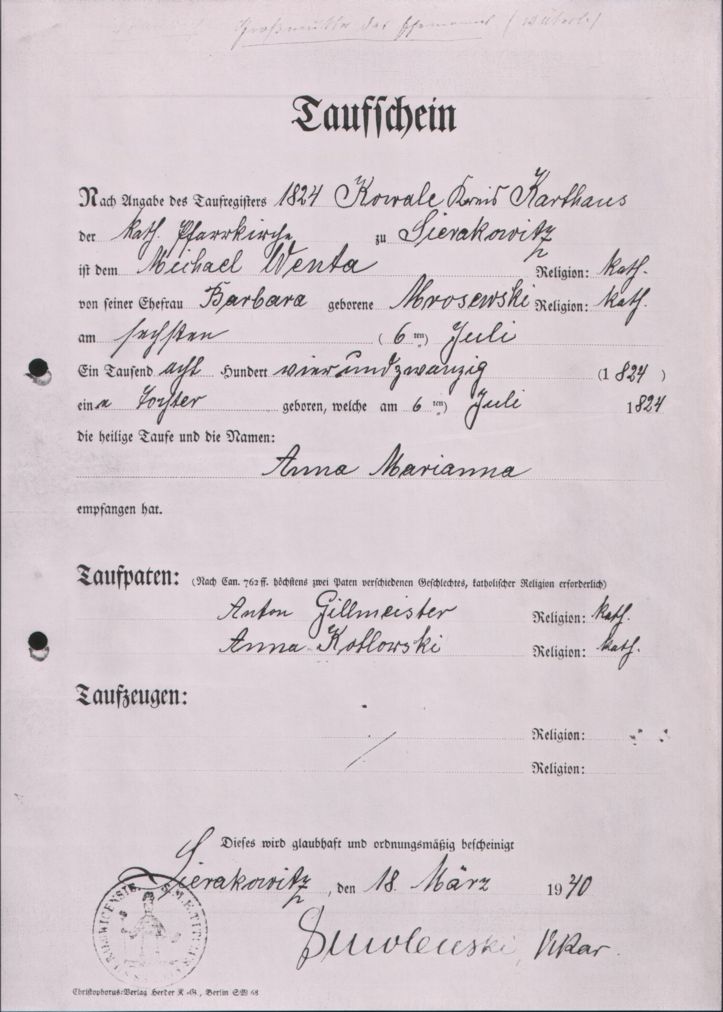 Großmutter des Ehemannes
Taufschein
Nach Angabe des Taufregisters 1824 Kowale Kreis Karthaus
der kath. Pfarrkirche zu Sierakowitz
ist dem Michael Wenta Religion: kath.
von seiner Ehefrau Barbara geborene Mrosewski Religion: kath.
am sechsten (6ten) Juli
Ein Tausend acht Hundert vierundzwanzig (1824)
eine Tochter geboren, welche am 6ten) Juli 1824
die heilige Taufe und die Namen:
Anna Marianna
empfangen hat.
Taufpaten: (Nach Can. 762 ff. höchstens zwei Paten verschiedenen Geschlechtes, katholischer Religion erforderlich)
Anton Gillmeister Religion: kath.
Anna Kotlowski Religion: kath.
Taufzeugen:
Religion:
Religion:
Dieses wird glaubhaft und ordnungsmäßig bescheinigt
Sierakowitz, den 18. März 1940
Smolenski, Vikar.
Christophorus-Verlag Herder K.-G., Berlin SW 68